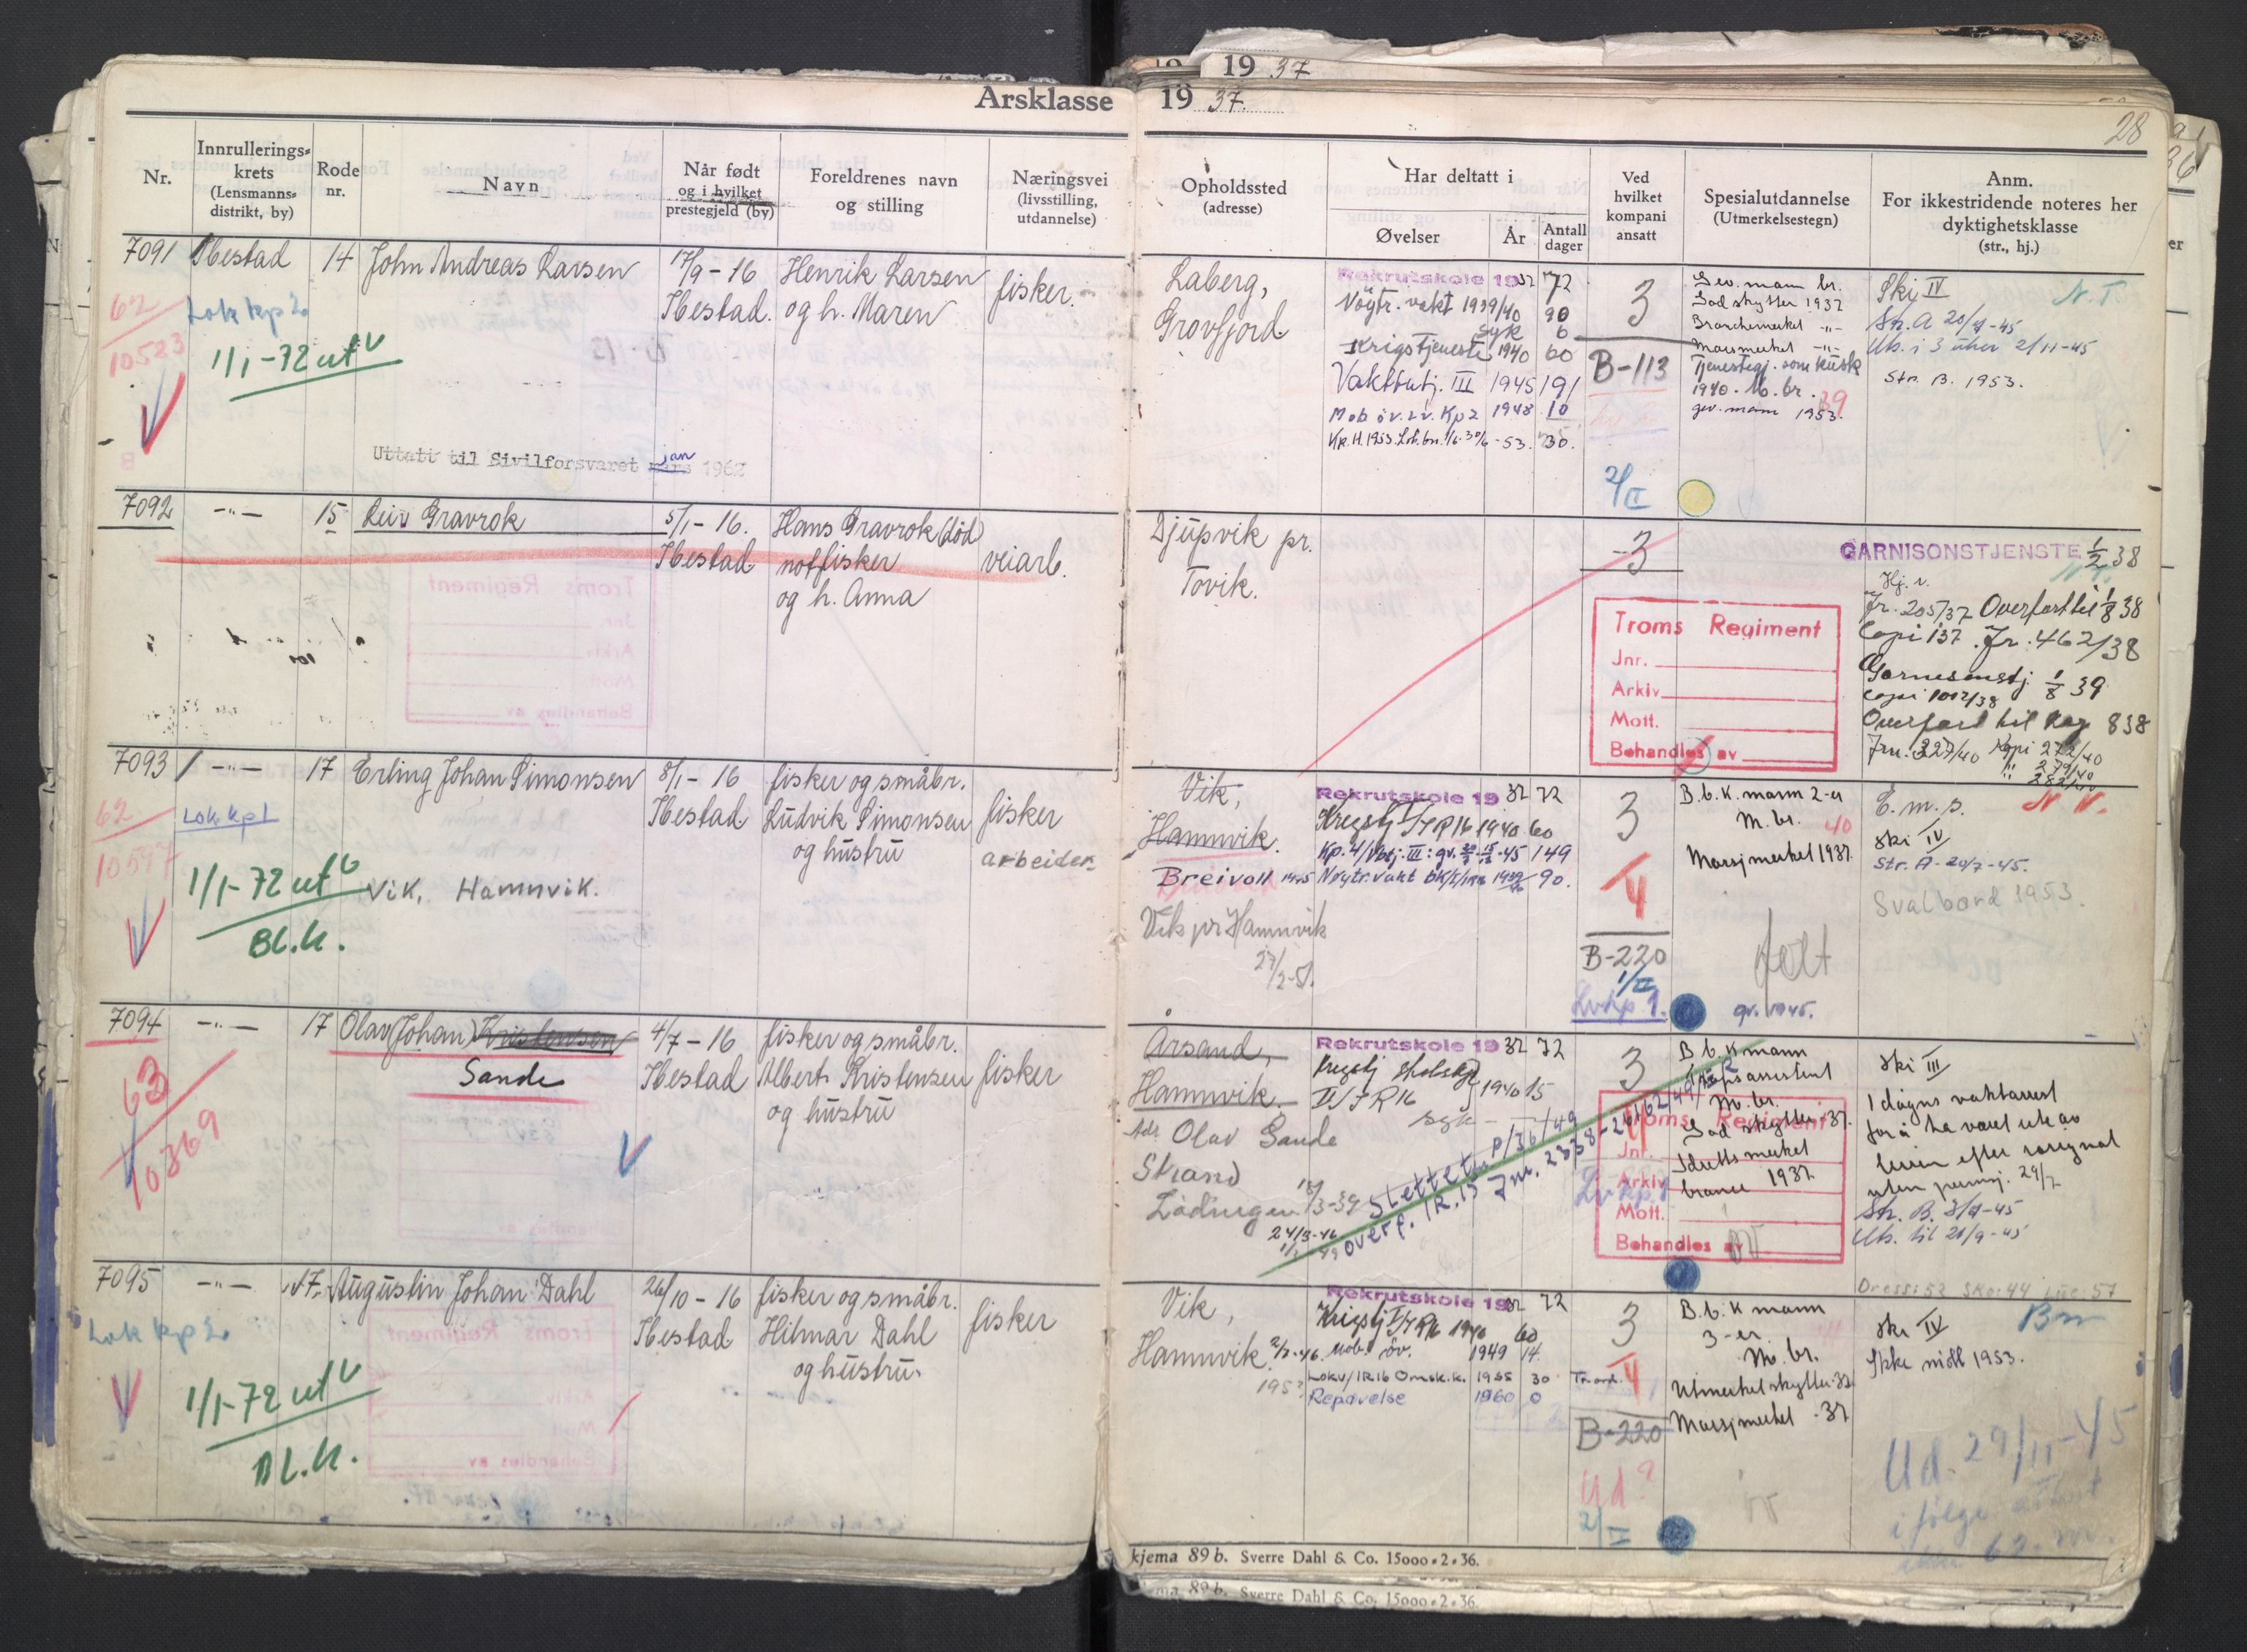 19 37
Årsklasse 19 37.
28
Nr.
Innrullerings-
krets
(Lensmanns-
distrikt, by)
Rode
nr.
Navn
Når født
og i hvilket
prestegjeld (by)
Foreldrenes navn
og stilling
Næringsvei
(livsstilling,
utdannelse)
Opholdssted
(adresse)
Har deltatt i
Øvelser
År
Antall
dager
Ved
hvilket
kompani
ansatt
Spesialutdannelse
(Utmerkelsestegn)
Anm.
For ikkestridende noteres her
dyktighetsklasse
(str., hj.)
7091 Ibestad 14 John Andreas Larsen
17/9 - 16
Ibestad.
Henrik Larsen
og h. Maren
fisker.
62
10523
Lok kp 2
1/1-72 utv
Uttatt til Sivilforsvaret mars jan 1962
Laberg,
Grovfjord
Rekrutskole 19 37 72
Nøytr. vakt 1939/40 90
syk 6
Krigstjeneste 1940 60
Vaktbatj. III 1945 191
Mob öv. Lv. Kp 2 1948 10
30.
3
B-113
2/II
Gev. mann br.
God skytter 1937
Marsmerket -"-
Tjenestegj. som kusk
1940. M. br. 39
gev. mann 1953.
Ski IV
N.T.
Str. A 20/7-45
2/11-45
Str. B. 1953.
7092 -"- 15 Leiv Gravrok
5/1 - 16.
Ibestad
Hans Gravrok (død)
notfisker
og h. Anna
veiarb.
Djupvik pr.
Tovik.
3
Troms Regiment
Jnr.
Arkiv
Mott.
Behandles av
GARNISONSTJENSTE 1/2 38
Hj. v.
Jr. 205/37 Overført til 1/8 38
Copi 137. Jr. 462/38
Garnisonstj. 1/8 39
Copi 1012/38
Overført til 838
Jnr. 327/40 Kopi 272/40
" 279/40
7093 -"- 17 Erling Johan Simonsen
8/1 - 16
Ibestad
fisker og småbr.
Ludvik Simonsen
og hustru
fisker
arbeider
62
10597
Lok kp 1
1/1-72 utv
Bl.k.
Vik, Hamnvik.
Vik,
Hamnvik.
Breivoll 1945
Vik pr Hamnvik
27/2-51.
Rekrutskole 19 37 72
Krigstj I/IR16 1940 60
149
Nøytr. vakt 90.
3
4
B-220
1/II
Lvkp 1.
B.b.K. mann 2-er
M. br. 40
Marsjmerket 1937
felt
gr. 1945.
E. m. s. N V.
Ski IV
Str. A - 20/7-45.
Svalbard 1953.
7094 -"- 17 Olav (Johan) Kristensen
Sande
4/7 - 16
Ibestad
fisker og småbr.
Albert Kristensen
og hustru
fisker
63
10369
Årsand,
Hamnvik.
Adr. Olav Sande
Strand
Lødingen 18/3-39
24/3-46
Rekrutskole 19 37 72
Krigstj
II/IR16 1940 15
syk
Slettet P/36/49
overf. IR.15 Jnr. 2338-
3
4
Lvkp 1
B b. K mann
M. br.
God skytter -37.
Idrettsmerket
1937
Troms Regiment
Jnr.
Arkiv
Mott.
Behandles av
Ski III
1 døgns vaktarrest
for å ha været ute av
uten permisj. 29/7
Str. B.
Dress: 52 Sko: 44 Lue: 57
7095 -"- 17. Augustin Johan Dahl
26/10 - 16
Ibestad
fisker og småbr.
Hilmar Dahl
og hustru.
fisker
Lok kp 2
1/1-72 utv
Bl.k.
Vik,
Hamnvik.
Rekrutskole 19 37 72
Krigstj I/IR16 1940 60
Mob. öv. 1949 14
Lokv/IR16 Omsk.k. 1955 30
Repøvelse 1960 0
3
4
B-220
Ud?
2/II
B.b.K mann
3-er
M. br.
Utmerket skytter-37
Marsjmerket -37
Ski IV
Ikke mött 1953.
Ud. 29/11-45
i følge
kjema 89 b. Sverre Dahl & Co. 15000 . 2 . 36.
89 b. Sverre Dahl & Co. 15000 . 2 . 36.